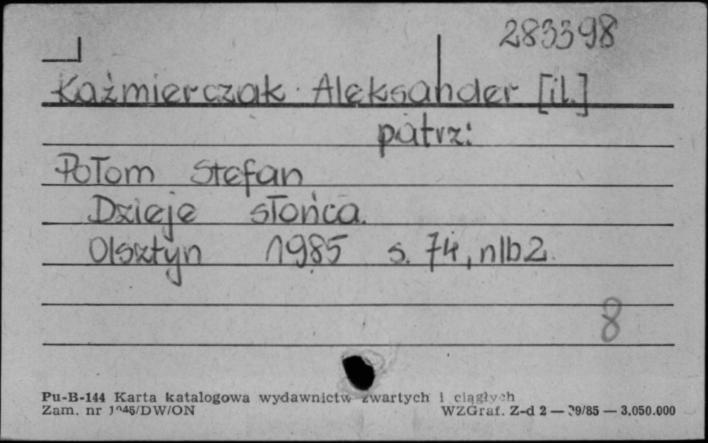 283398
Kaźmierczak Aleksander [il.]
patrz:
Połom Stefan
Dzieje słońca.
Olsztyn 1985 s. 74, nlb2.
8
Pu-B-144 Karta katalogowa wydawnictw zwartych i ciągłych
Zam. nr /DW/ON WZGraf. Z-d 2 — 39/85 — 3.050.000